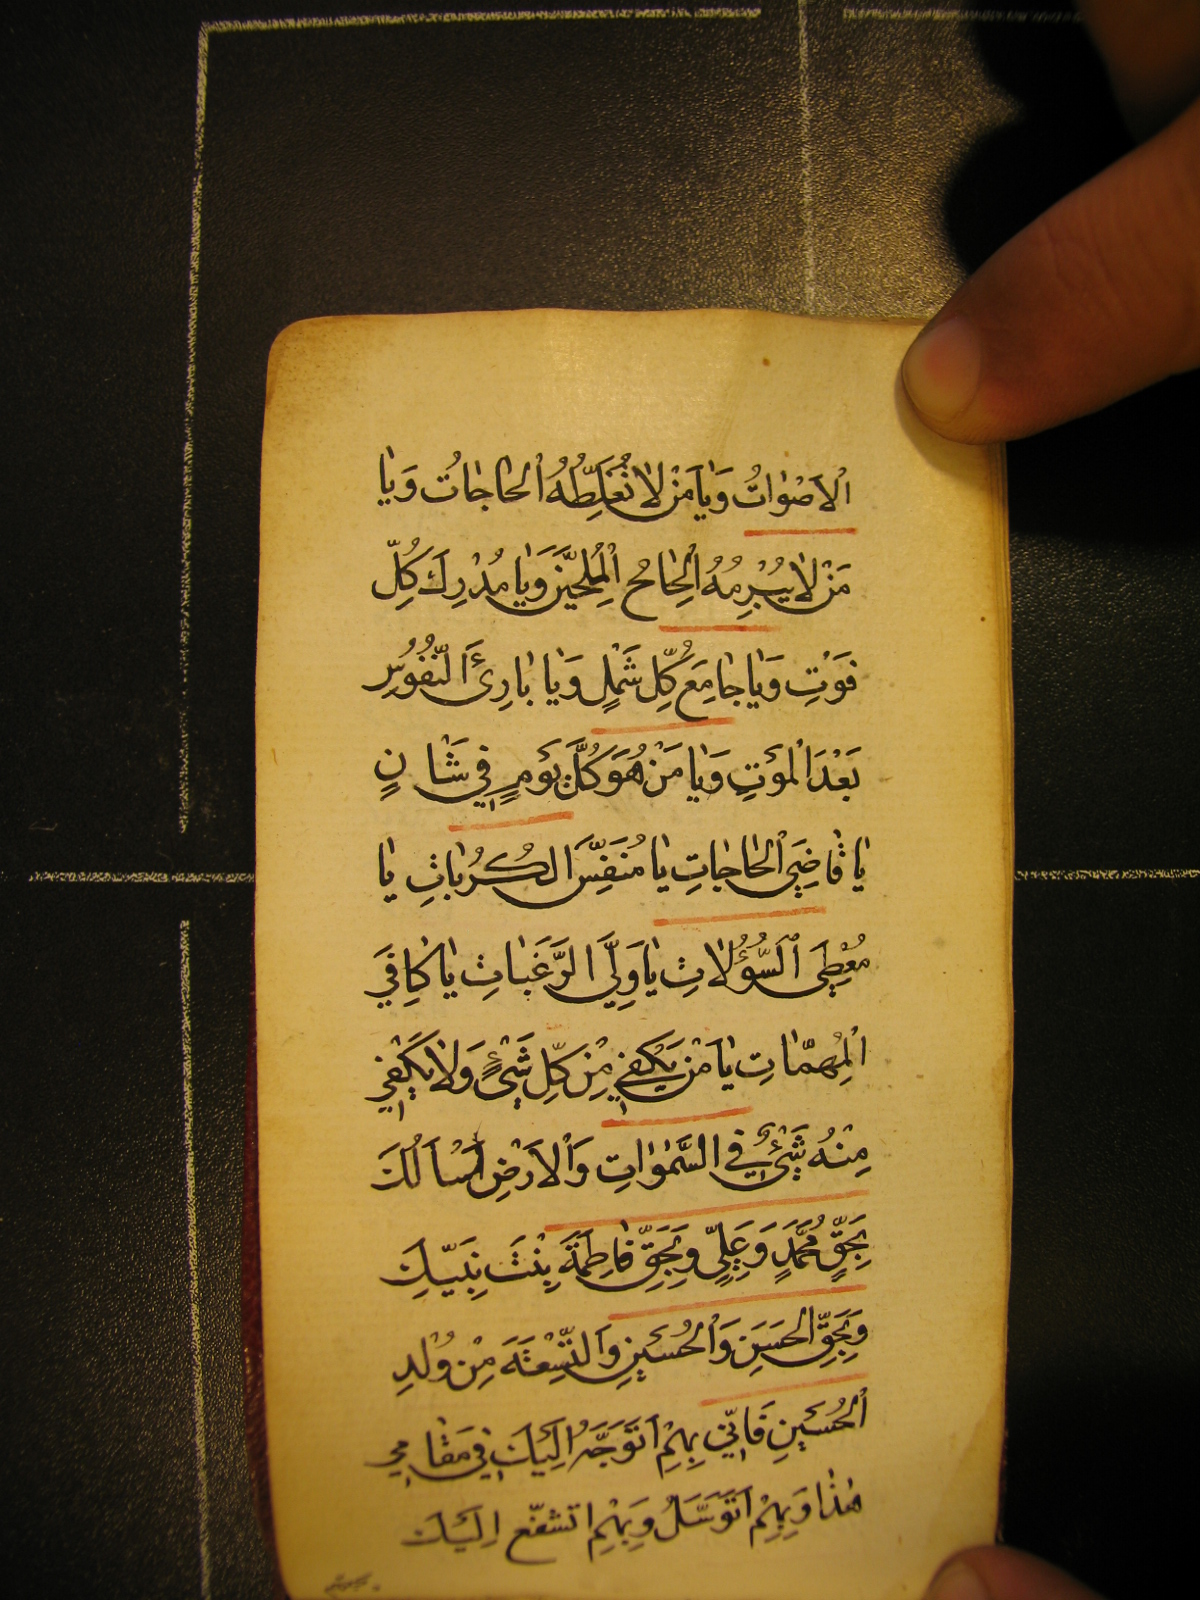 الْاَصْوٰاتُ وَيٰا مَنْ لٰا تُغَلِّطُهُ الْحٰاجٰاتُ وَيٰا
مَنْ لٰا يُبْرِمُهُ اِلْحٰاحُ الْمُلِحّينَ وَيٰا مُدْرِكَ كُلِّ
فَوْتٍ وَيٰا جٰامِعَ كُلِّ شَمْلٍ وَيٰا بٰارِئَ النُّفُوسِ
بَعْدَ الْمَوْتِ وَيٰا مَنْ هُوَ كُلَّ يَوْمٍ فِي شَاْنٍ
يٰا قٰاضِيَ الْحٰاجٰاتِ يٰا مُنَفِّسَ الْكُرُبٰاتِ يٰا
مُعْطِيَ السُّؤُلاٰتِ يٰا وَلِيَّ الرَّغَبٰاتِ يٰا كٰافِيَ
الْمُهِمّٰاتِ يٰا مَنْ يَكْفي مِنْ كُلِّ شَيْءٍ وَلٰا يَكْفي
مِنْهُ شَيْءٌ فِي السَّمٰوٰاتِ وَالْاَرْضِ اَسْاَلُكَ
بِحَقِّ مُحَمَّدٍ وَعَلِيٍّ وَبِحَقِّ فٰاطِمَةَ بِنْتِ نَبِيِّكَ
وَبِحَقِّ الْحَسَنِ وَالْحُسَيْنِ وَالتِّسْعَةَ مِنْ وُلْدِ
الْحُسَيْنِ فَاِنّي بِهِمْ اَتَوَجَّهُ اِلَيْكَ في مَقٰامي
هٰذٰا وَبِهِمْ اَتَوَسَّلُ وَبِهِمْ اَتَشَفَّعُ اِلَيْكَ